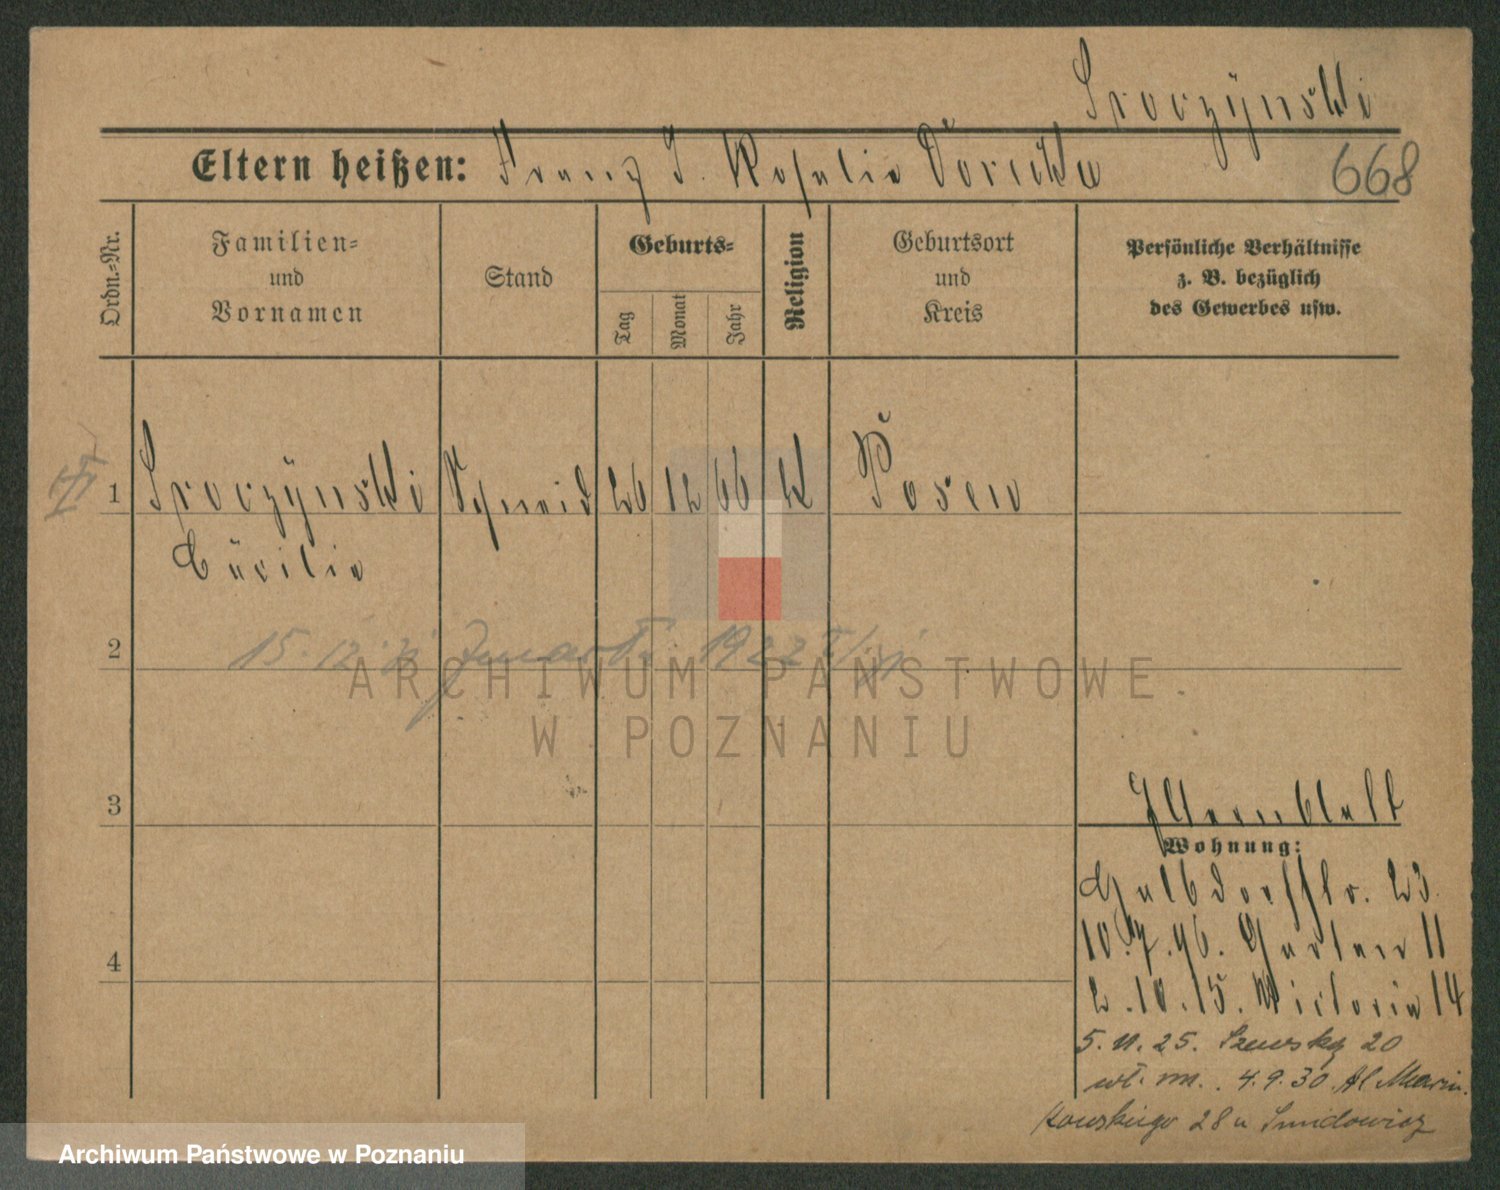 Sroczÿnski
Eltern heißen: Franz J. Rosalie
668
Ordn.=Nr.
Familien=
und
Vornamen
Stand
Geburts=
Tag
Monat
Jahr
Religion
Geburtsort
und
Kreis
Persönliche Verhältnisse
z. B. bezüglich
des Gewerbes usw.
1 Sroczÿnski Schneid 26 12 66 K Posen
Cäcilie
15. 12. zmarła 1922
2
ARCHIWUM PAŃSTWOWE
W POZNANIU
3
Elternblatt
Wohnung:
Halbdorfstr. 23.
10.7.96. Garten 11
4
2.10.15. Victoria 14
5.11.25. Szewska 20
wł. m. 4.9.30. Al Marcin
kowskiego 28 u
Archiwum Państwowe w Poznaniu